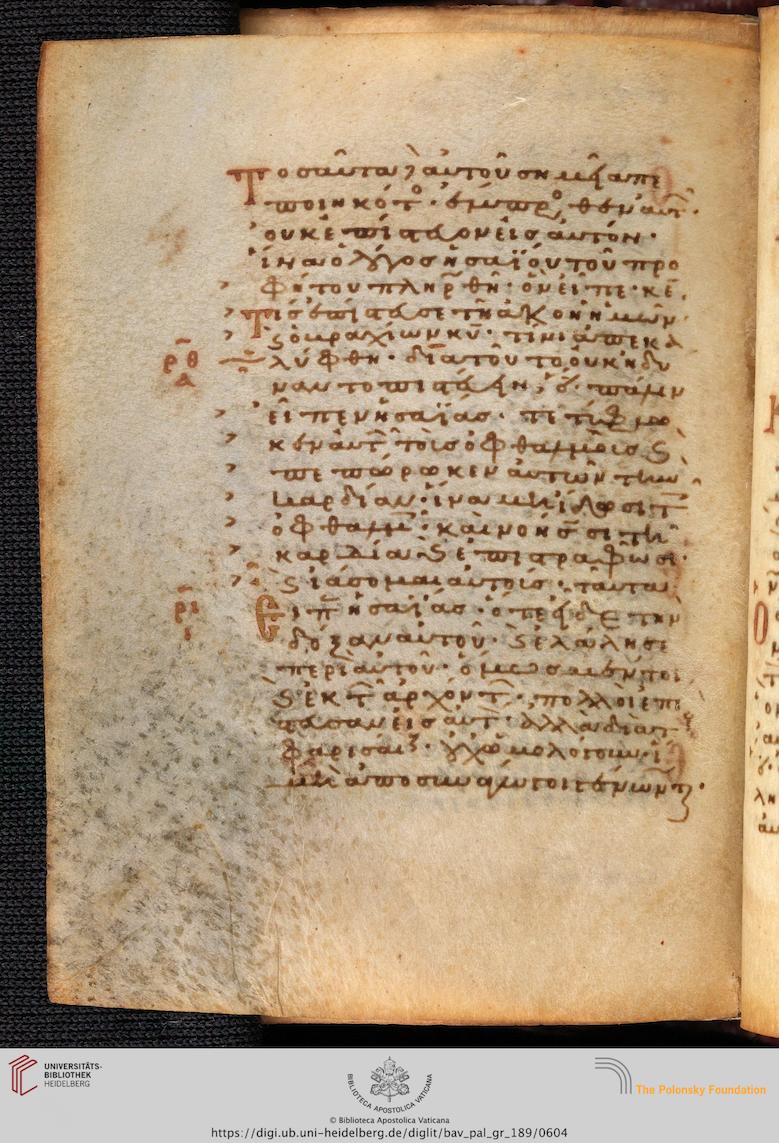 Τοσαῦτα δὲ αὐτοῦ σημεῖα πε
ποιηκότο ἔμπρο θεν αὐτ
οὐκ ἐπίστευον εἰς αὐτόν
ἵνα ὁ λόγος ἠσαΐου τοῦ προ
φήτου πληρωθῆ ὃν εἶπε κε
Τίς ἐπίστευσε τῆ ἀκοῆ ἡμῶν
ϛ ὁ βραχίων κυ τίνι ἀπεκα
λύφθη διὰ τοῦτο οὐκ ἠδύ
ρθ
δ
ναντο πιστεύειν ὅτι πάλιν
εἶπεν ἠσαΐας τετύφλω
κεν αὐτ τοὺς ὀφθαλμοὺς ϛ
πεπώρωκεν αὐτῶν τὴν
καρδίαν ἵνα μὴ ἴδωσι τ
ὀφθαλμ καὶ νοήσωσι τῆ
καρδία ϛ ἐπιστραφῶσι
ϛ ἰάσομαι αὐτούς ταῦτα
ρι
ι
Εἶπ ἠσαΐας ὅτε εἶδε τὴν
δόξαν αὐτοῦ ϛ ἐλάλησε
περὶ αὐτοῦ ὅμως μέντοι
ϛ ἐκ τ ἀρχόντ πολλοὶ ἐπί
στευσαν εἰς αὐτ ἀλλὰ διὰ τ
φαρισαί οὐχ ὡμολόγουν ἵ
μὴ ἀποσυνάγωγοι γένωντ
UNIVERSITÄTS-
BIBLIOTHEK
HEIDELBERG
BIBLIOTECA APOSTOLICA VATICANA
The Polonsky Foundation
© Biblioteca Apostolica Vaticana
https://digi.ub.uni-heidelberg.de/diglit/bav_pal_gr_189/0604